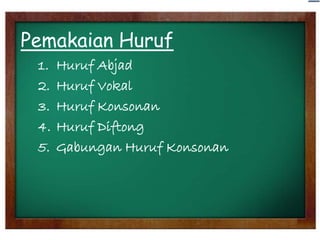 Pemakaian Huruf
1. Huruf Abjad
2. Huruf Vokal
3. Huruf Konsonan
4. Huruf Diftong
5. Gabungan Huruf Konsonan